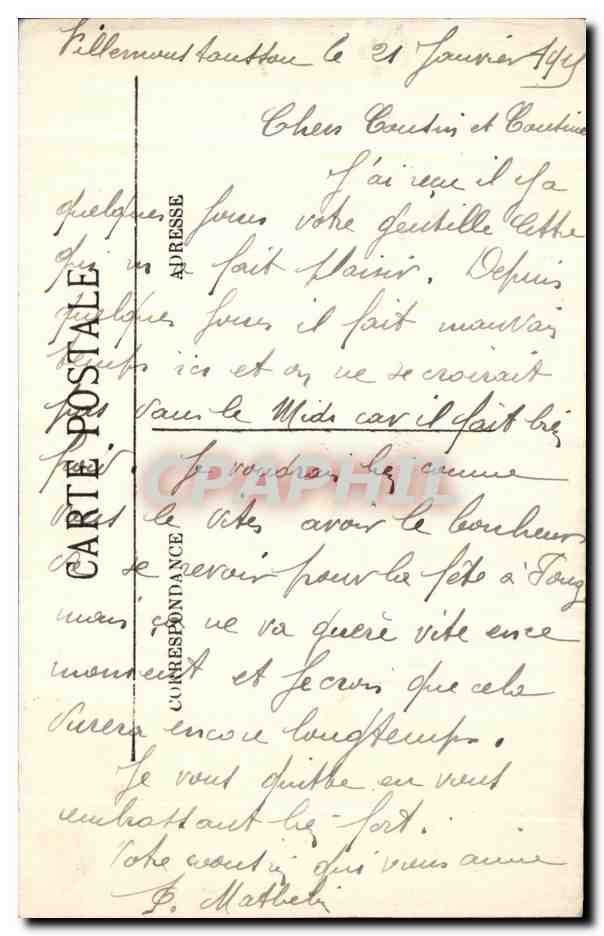 Villemoustoussou le 21 Janvier 191
Chers Cousin et Cousine
J'ai reçu il y a
quelques jours votre gentille lettre
qui m'a fait plaisir. Depuis
quelques jours il fait mauvais
temps ici et on ne se croirait
pas dans le Midi car il fait bien
froid. Je voudrais bien comme
vous le dites avoir le bonheur
de se revoir pour la fête à
mais ça ne va guère vite en ce
moment et Je crois que cela
durera encore longtemps.
Je vous quitte en vous
embrassant bien fort.
Votre cousin qui vous aime
P. Mathelin
CARTE POSTALE
ADRESSE
CORRESPONDANCE
CPAPHIL